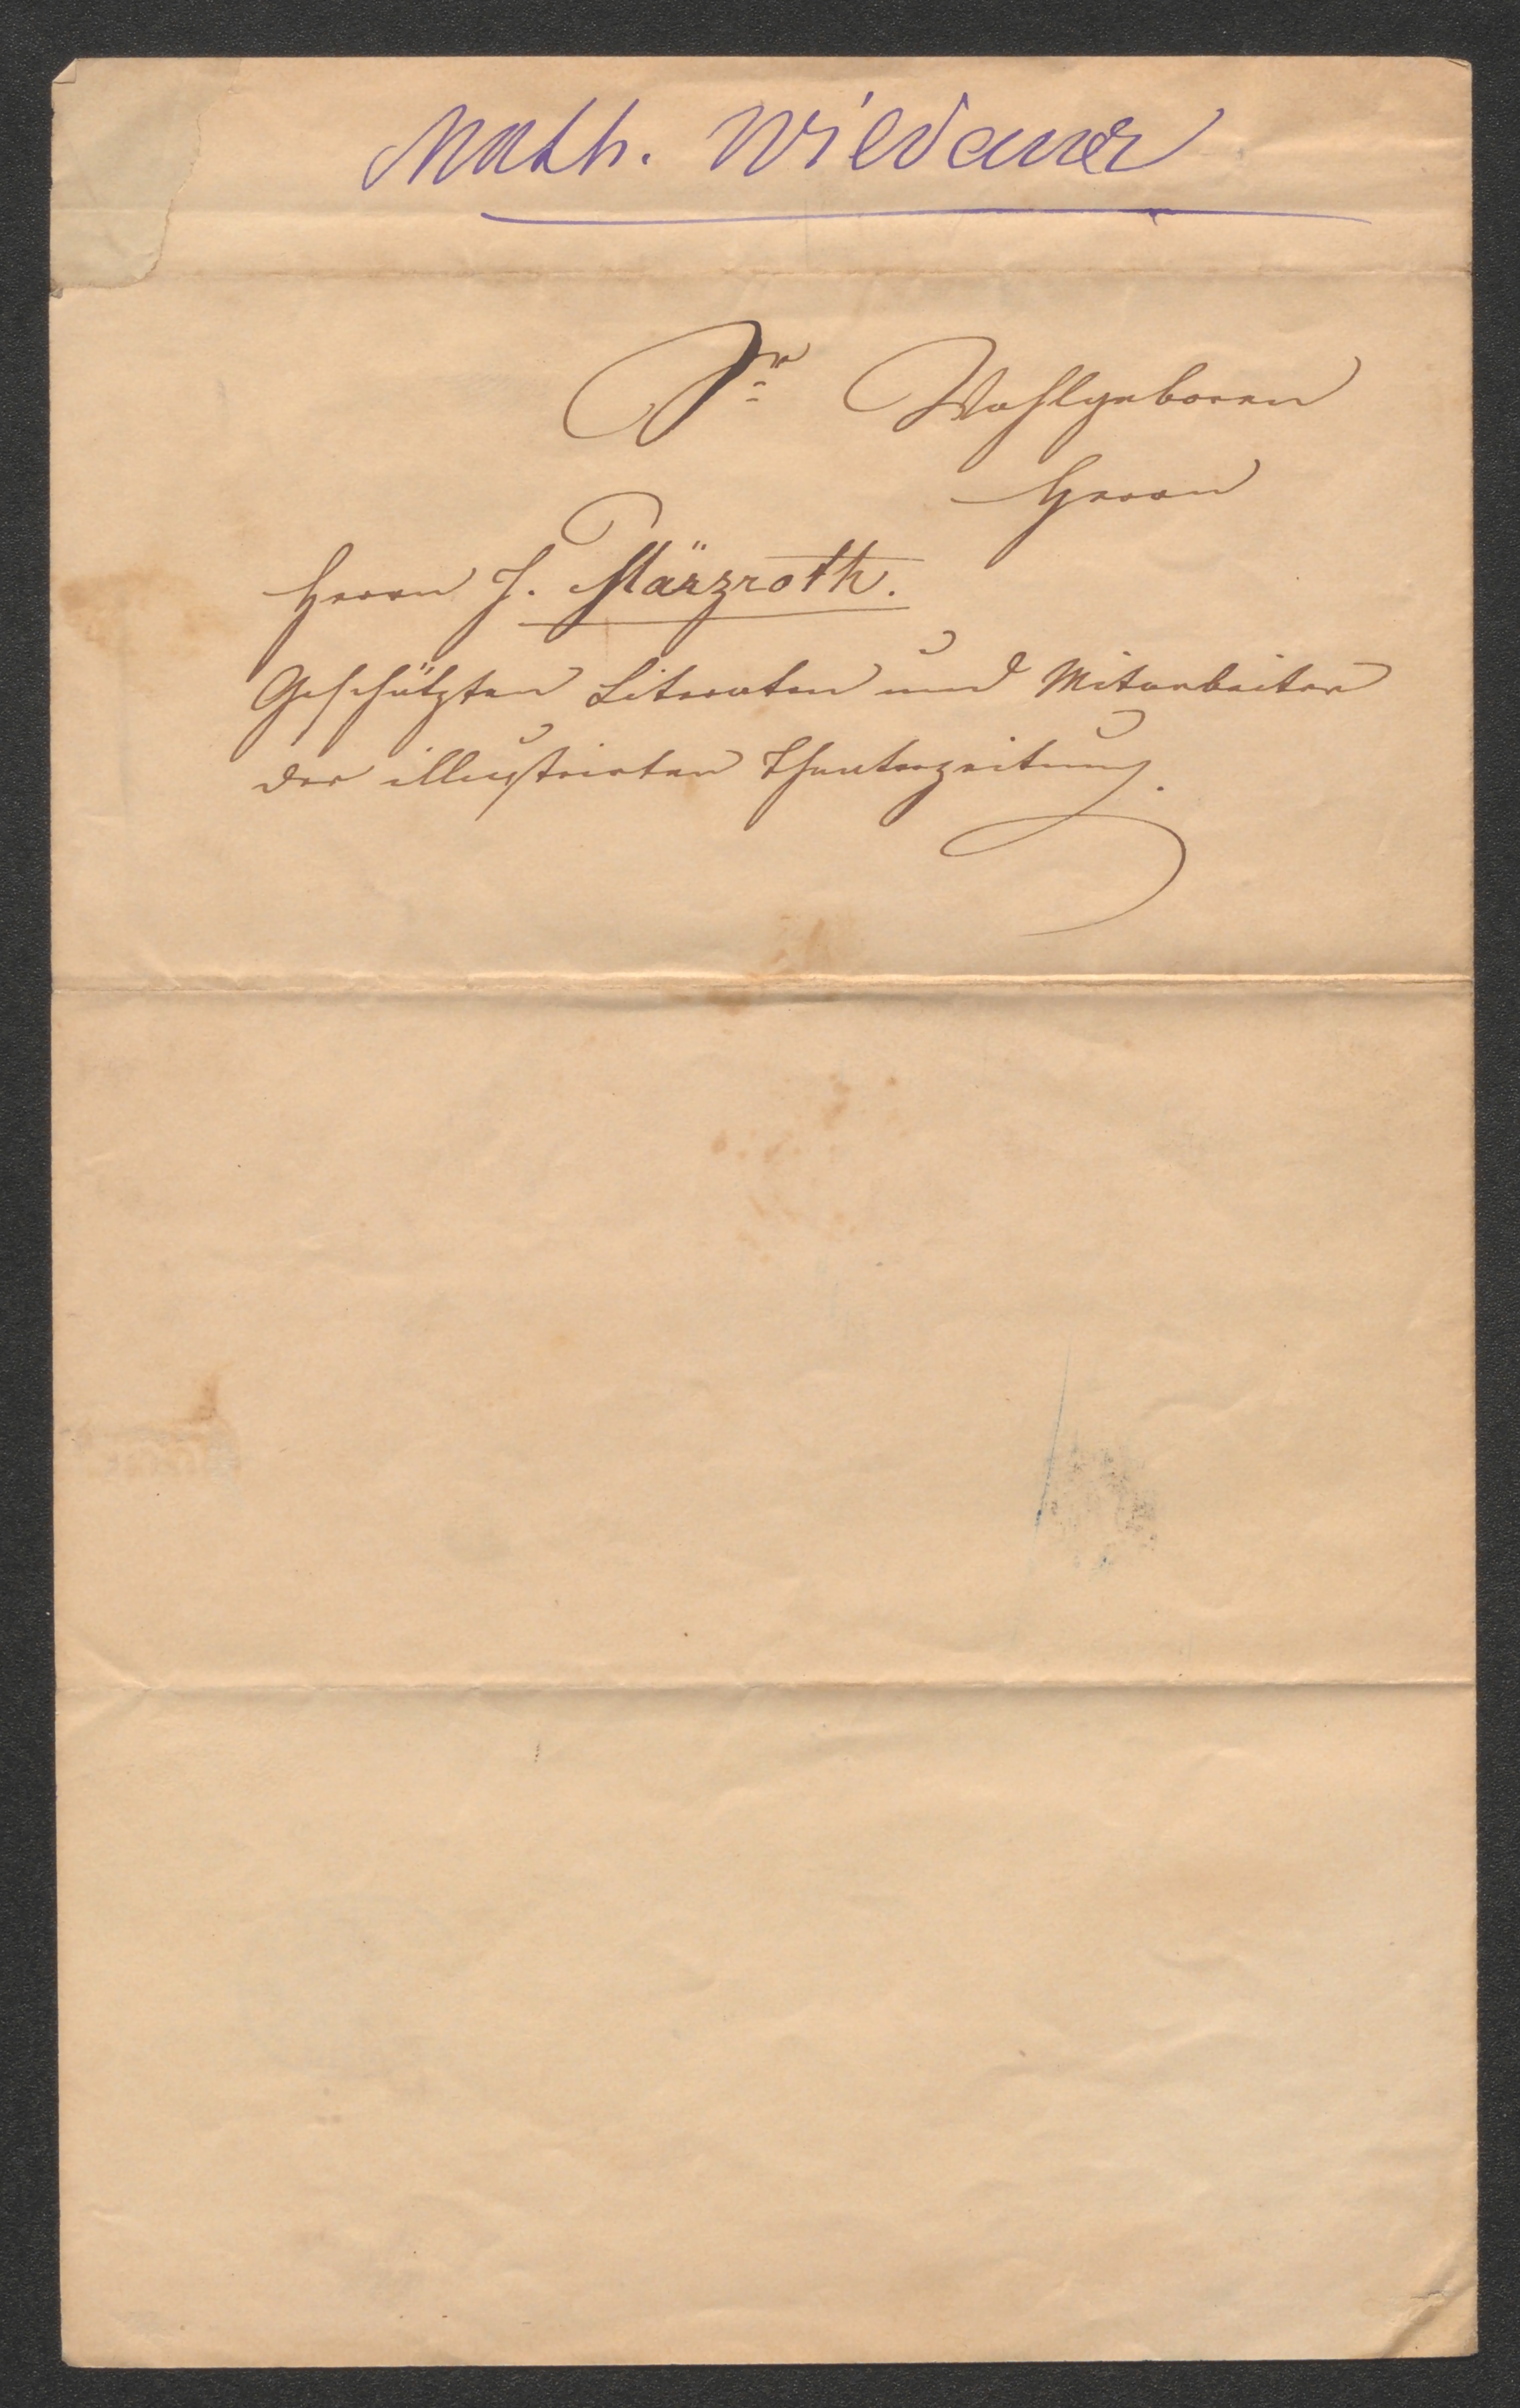 Math. Wildauer
Sr Wohlgeboren
Herrn
Herrn J. Märzroth.
Geschätzten Literaten und Mitarbeiter
der illustrirten Theaterzeitung.